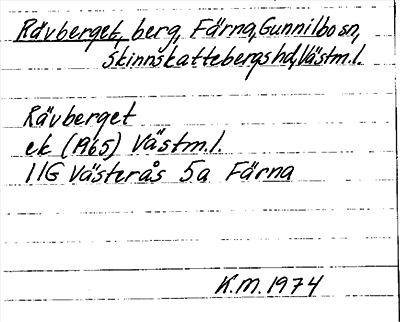 Rävberget, berg, Färna, Gunnilbo sn,
Skinnskattebergs hd, Västm.l.
Rävberget
ek (1965) Västm.l.
11G Västerås 5a Färna
K.M. 1974